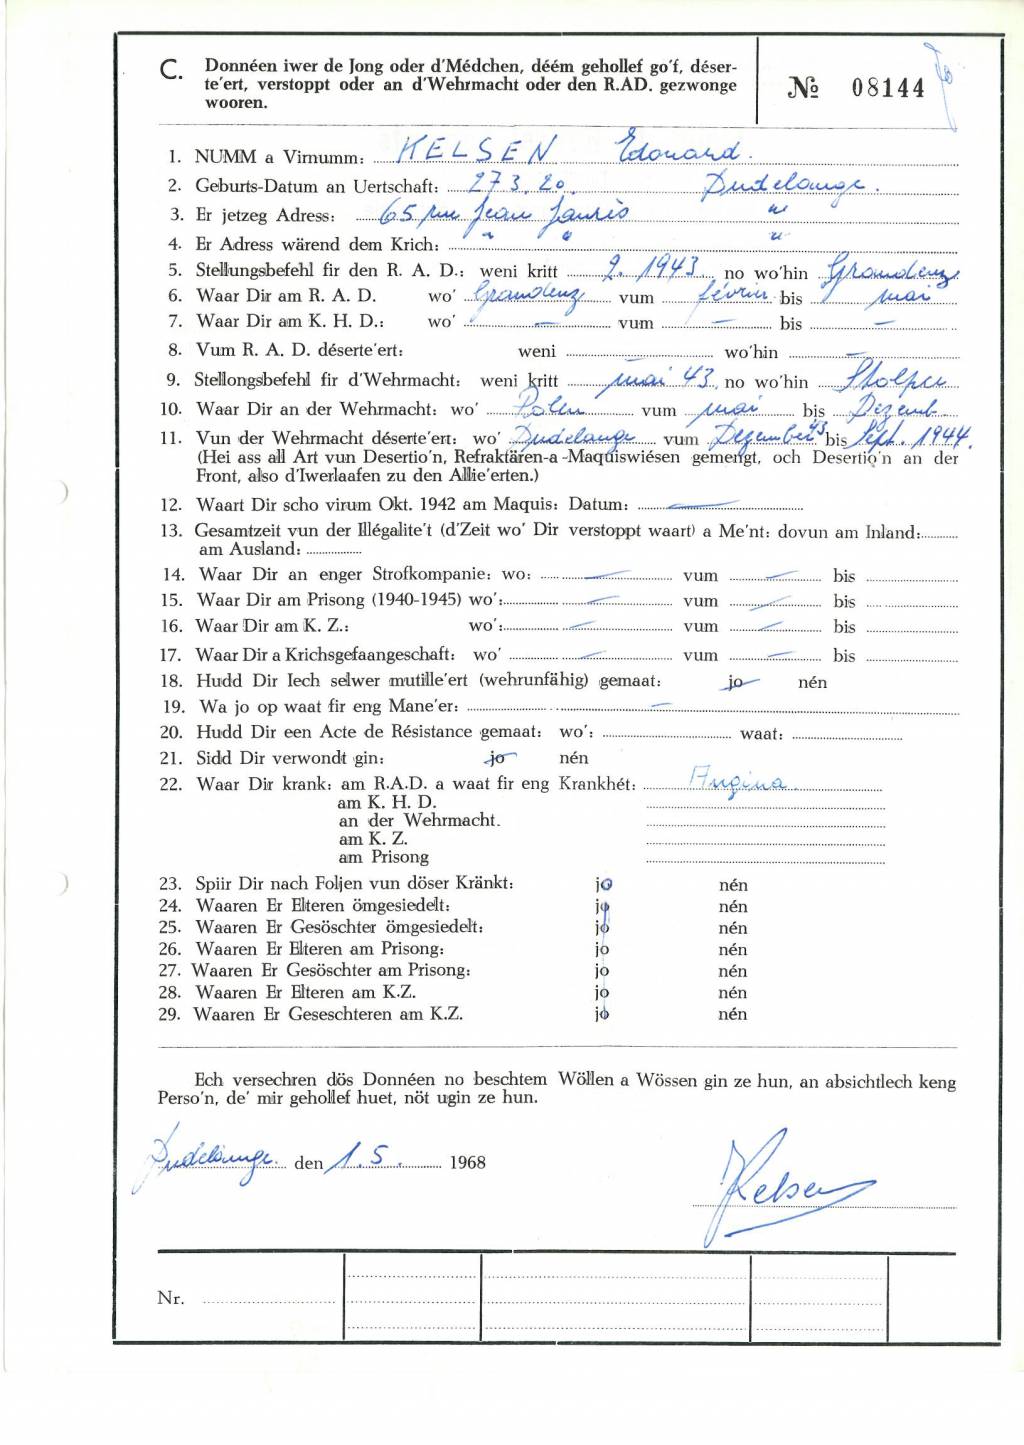 C. Donnéen iwer de Jong oder d'Médchen, déém gehollef go'f, déser-
te'ert, verstoppt oder an d'Wehrmacht oder den R.AD. gezwonge
wooren.
№ 08144
1. NUMM a Virnumm: KELSEN Edouard.
2. Geburts-Datum an Uertschaft: 27 3. 20. Dudelange.
3. Er jetzeg Adress: 65 rue Jean Jaurès "
4. Er Adress wärend dem Krich: " " "
5. Stellungsbefehl fir den R. A. D.: weni kritt 2. 1943 no wo'hin Graudenz
6. Waar Dir am R. A. D. wo' Graudenz vum février bis mai
7. Waar Dir am K. H. D.: wo' — vum — bis —
8. Vum R. A. D. déserte'ert: weni — wo'hin —
9. Stellongsbefehl fir d'Wehrmacht: weni kritt mai 43 no wo'hin Stolpe
10. Waar Dir an der Wehrmacht: wo' Polen vum mai bis Dezemb.
11. Vun der Wehrmacht déserte'ert: wo' Dudelange vum Dezember 43 bis Sept. 1944.
(Hei ass all Art vun Desertio'n, Refraktären-a-Maquiswiésen gemengt, och Desertio'n an der
Front, also d'Iwerlaafen zu den Allie'erten.)
12. Waart Dir scho virum Okt. 1942 am Maquis: Datum: —
13. Gesamtzeit vun der Illégalite't (d'Zeit wo' Dir verstoppt waart) a Me'nt: dovun am Inland:
am Ausland:
14. Waar Dir an enger Strofkompanie: wo: — vum — bis
15. Waar Dir am Prisong (1940-1945) wo': — vum — bis
16. Waar Dir am K. Z.: wo': — vum — bis
17. Waar Dir a Krichsgefaangeschaft: wo' — vum — bis
18. Hudd Dir Iech selwer mutille'ert (wehrunfähig) gemaat: jo nén
19. Wa jo op waat fir eng Mane'er: —
20. Hudd Dir een Acte de Résistance gemaat: wo': waat:
21. Sidd Dir verwondt gin: jo nén
22. Waar Dir krank: am R.A.D. a waat fir eng Krankhét: Angina.
am K. H. D.
an der Wehrmacht.
am K. Z.
am Prisong
23. Spiir Dir nach Foljen vun döser Kränkt: jo nén
24. Waaren Er Elteren ömgesiedelt: jo nén
25. Waaren Er Gesöschter ömgesiedelt: jo nén
26. Waaren Er Elteren am Prisong: jo nén
27. Waaren Er Gesöschter am Prisong: jo nén
28. Waaren Er Elteren am K.Z. jo nén
29. Waaren Er Geseschteren am K.Z. jo nén
Ech versechren dös Donnéen no beschtem Wöllen a Wössen gin ze hun, an absichtlech keng
Perso'n, de' mir gehollef huet, nöt ugin ze hun.
Dudelange den 1. 5. 1968
Kelsen
Nr.